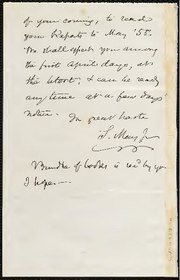 of your coming, to
your Reports to May '55.
We shall expect you among
the first April days, at
the utmost, & can be ready
any time at a few days
notice. In great haste
S. May, Jr.
Bundle of books is rec'd by you
I hope.—